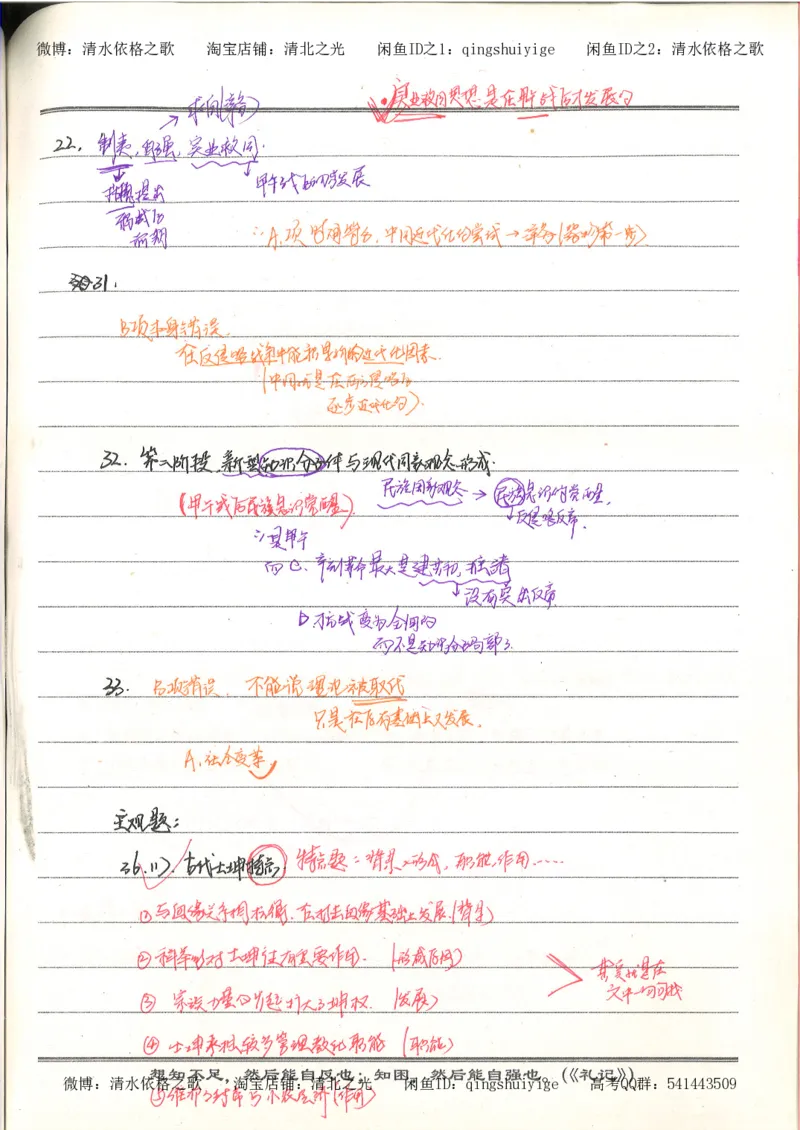 微博：清水依格之歌 淘宝店铺：清北之光 闲鱼ID之1：qingshuiyige 闲鱼ID之2：清水依格之歌
实业救国思想是在甲战后才发展的
→求同(韩)
22. 制夷，自强，实业救国.
甲午战后的发展
提出
鸦战
前期
∴A.项 明矛盾，中国近代化的尝试→
31.
B项本身错误.
在反侵略战争中能积累所的近代化因素.
(中国而是在后侵略后
逐步近代化的).
32. 第二阶段，新型知识分子群体与现代国家观念形成.
民族国家观念→民族意识的觉醒,
(甲午战后民族意识觉醒)
↓反侵略反帝.
∴是甲午
而C. 辛亥革命最大是建共和,
↓没有突出反帝.
D.抗战变为全国的
而不是知识分子局部了.
33. B项错误. 不能说理论被取代
只是在原有基础上又发展.
A.社会变革
主观题：
36.(1). 古代士绅特点. 特点题：背景、形成，职能，作用……
①与血缘关系相依偎，在打击的基础上发展(背景)
②科举制对士绅往有重要作用. (形成原因)
其实就是在
文中一句句找
③ 宗族力量兴起扩大了绅权. (发展)
④ 士绅承担较多管理教化职能 (职能)
想知不足，然后能自反也；知困，然后能自强也。(《礼记》)
微博：清水依格之歌 淘宝店铺：清北之光 闲鱼ID：qingshuiyige 高考QQ群：541443509
(作用)